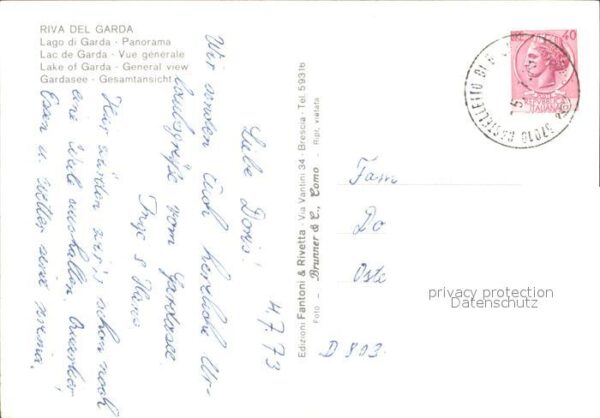 RIVA DEL GARDA
Lago di Garda - Panorama
Lac de Garde - Vue générale
Lake of Garda - General view
Gardasee - Gesamtansicht
4.7.73
Liebe Doris!
Wir senden Euch herzliche Ur-
laubsgrüße vom Gardasee.
Hier würden wir's schon noch
eine Weile aushalten. Quartier
Essen u. Wetter sind prima.
Edizioni Fantoni & Rivetta - Via Vantini 34 - Brescia - Tel. 59316
Foto - Brunner & C., Como - Ripr. vietata
40
37010 CASTELLETTO DI
Fam
Do
Oste
D 803
privacy protection
Datenschutz